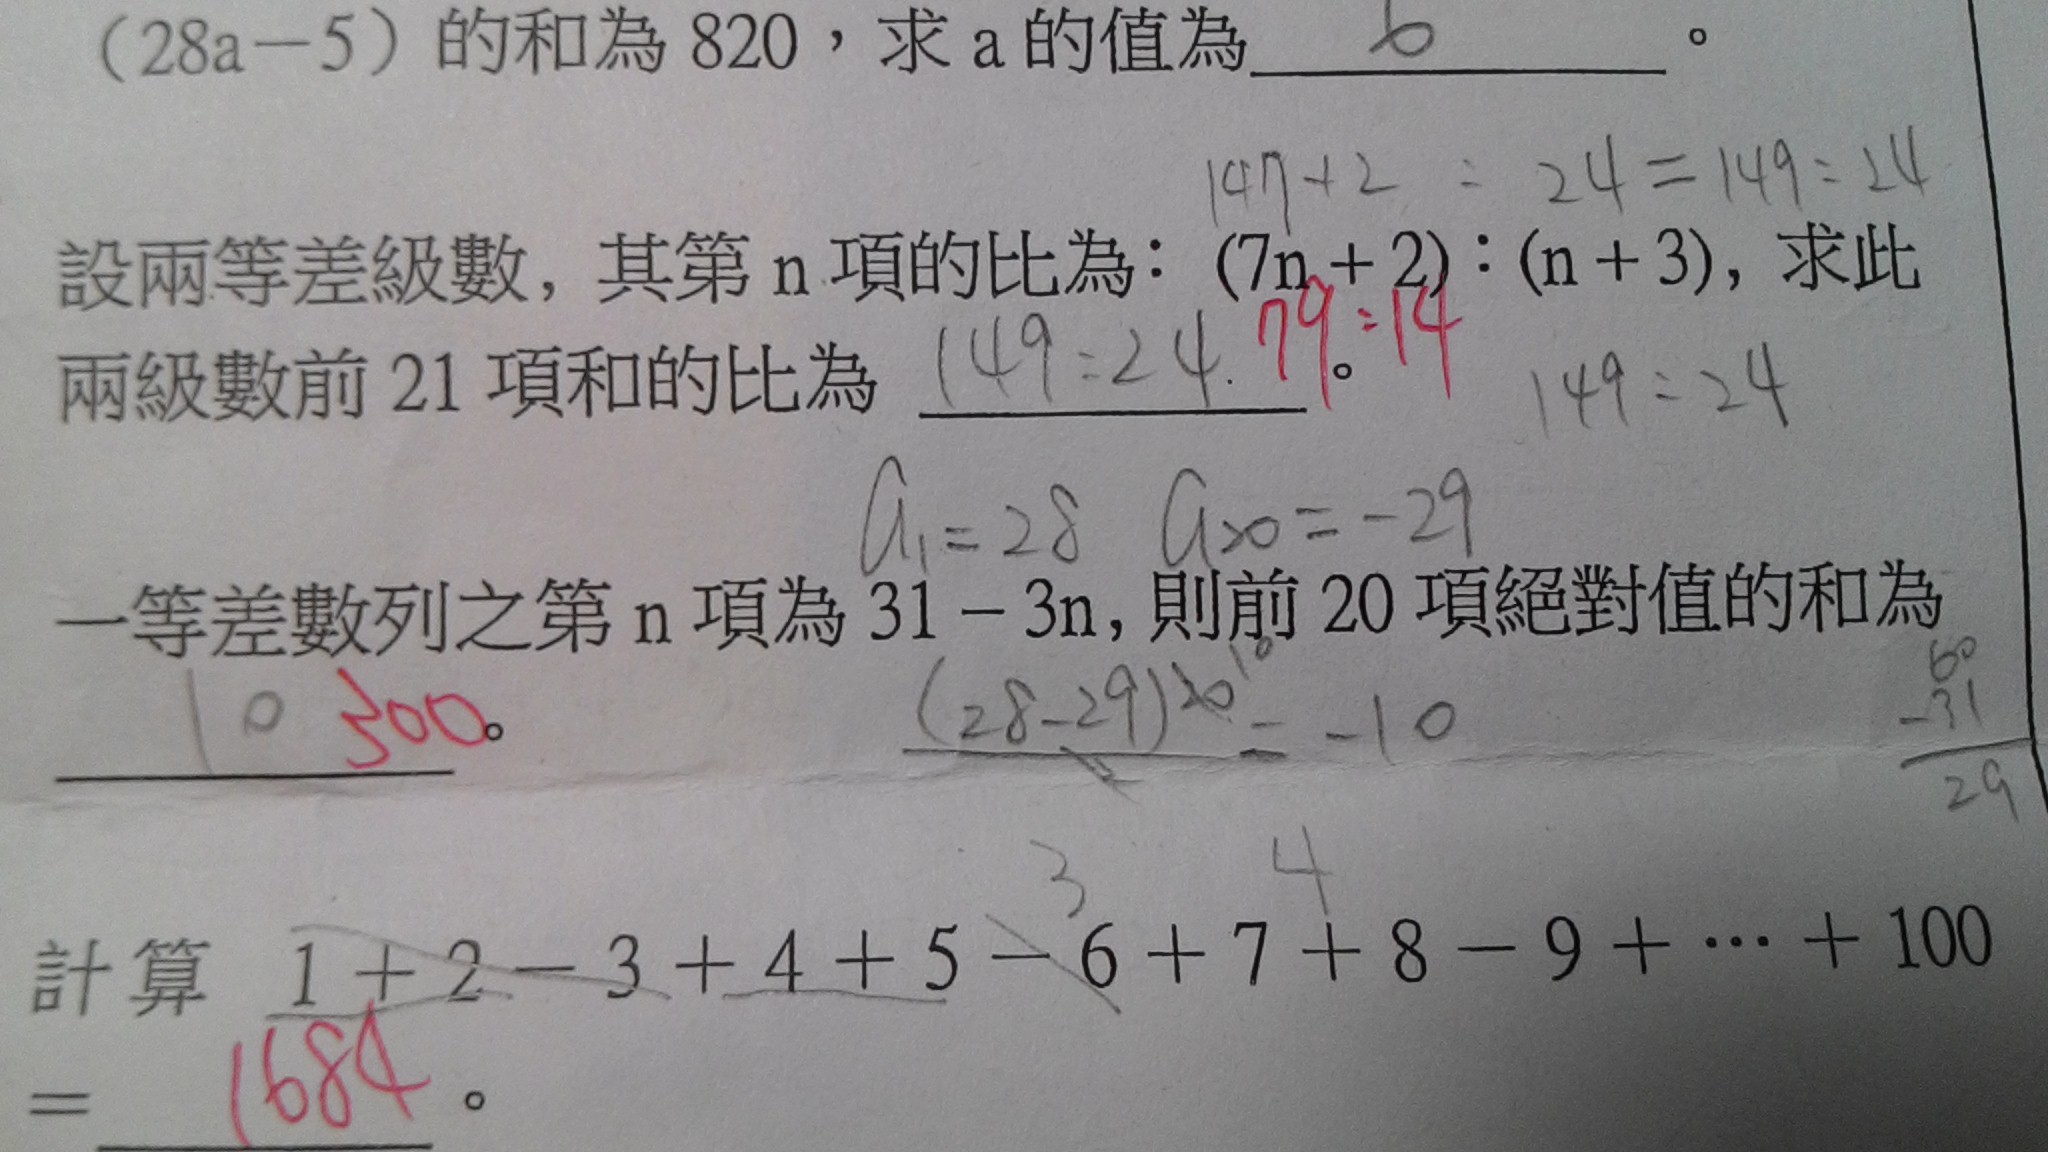 （28a－5）的和為 820，求 a 的值為 6 。
147+2 : 24 = 149:24
設兩等差級數, 其第 n 項的比為: (7n + 2)：(n + 3), 求此
兩級數前 21 項和的比為 149:24 。 79:14
149:24
a₁=28 a₂₀=-29
一等差數列之第 n 項為 31 － 3n, 則前 20 項絕對值的和為
10 300 。
(28-29)20 10 = -10
2
60
-31
29
3 4
計算 1 + 2 － 3 + 4 + 5 － 6 + 7 + 8 － 9 + ⋯ + 100
= 1684 。